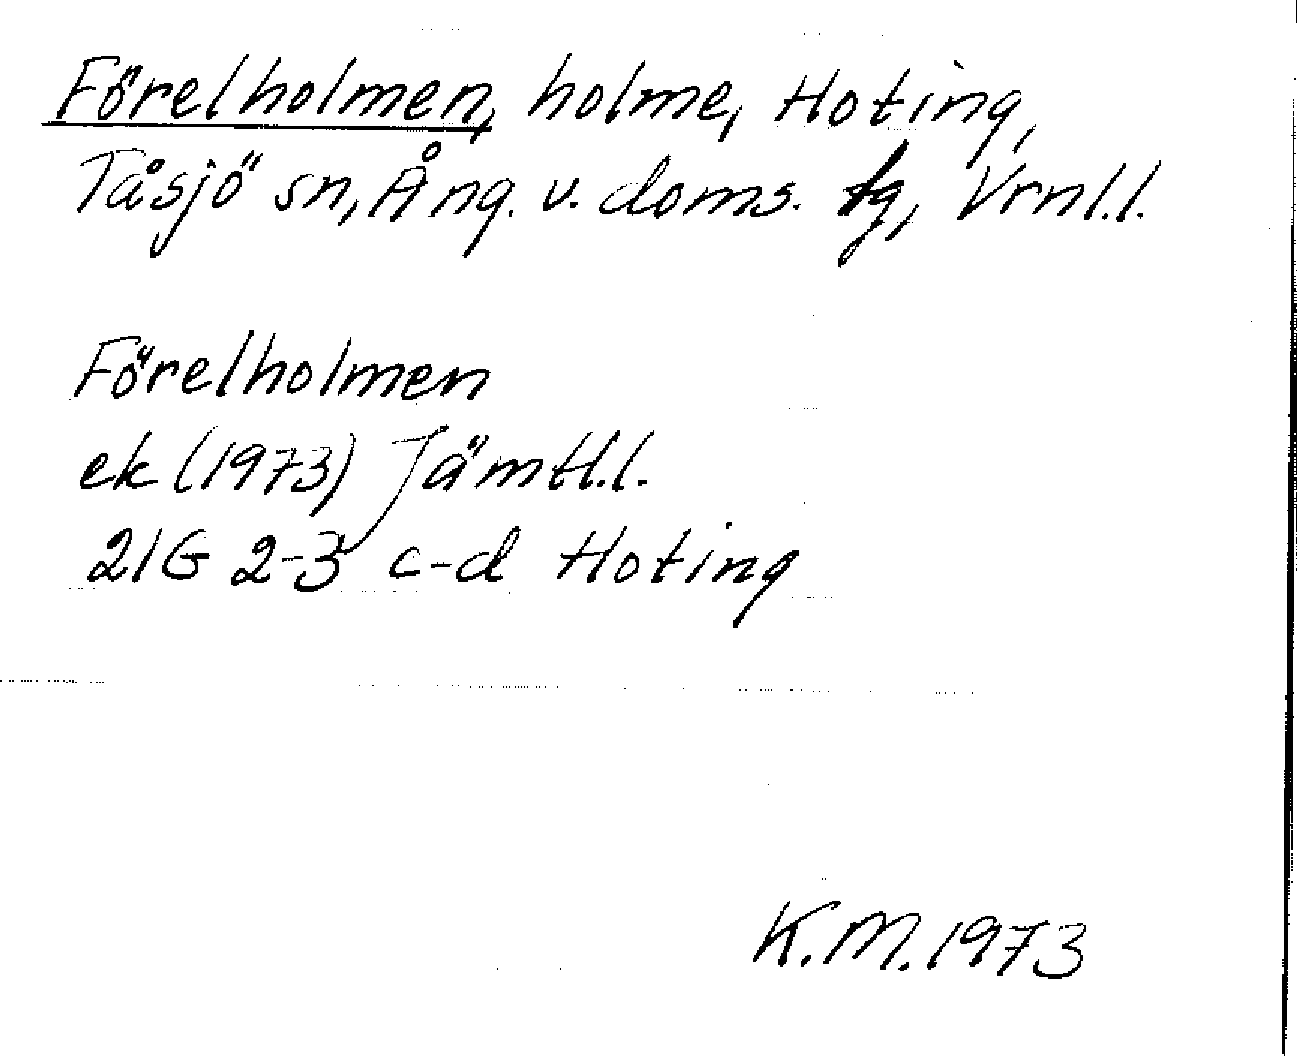 Förelholmen, holme, Hoting,
Tåsjö sn, Ång. v. doms. fg, Vrnl.l.
Förelholmen
ek (1973) Jämtl.l.
21G 2-3 c-d Hoting
K.M. 1973